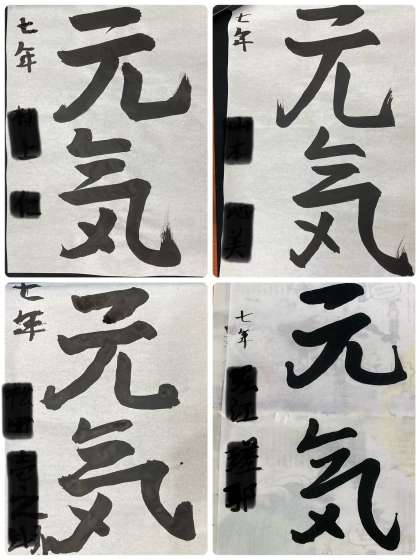 元気
七年
元気
七年
元気
七年
元気
七年